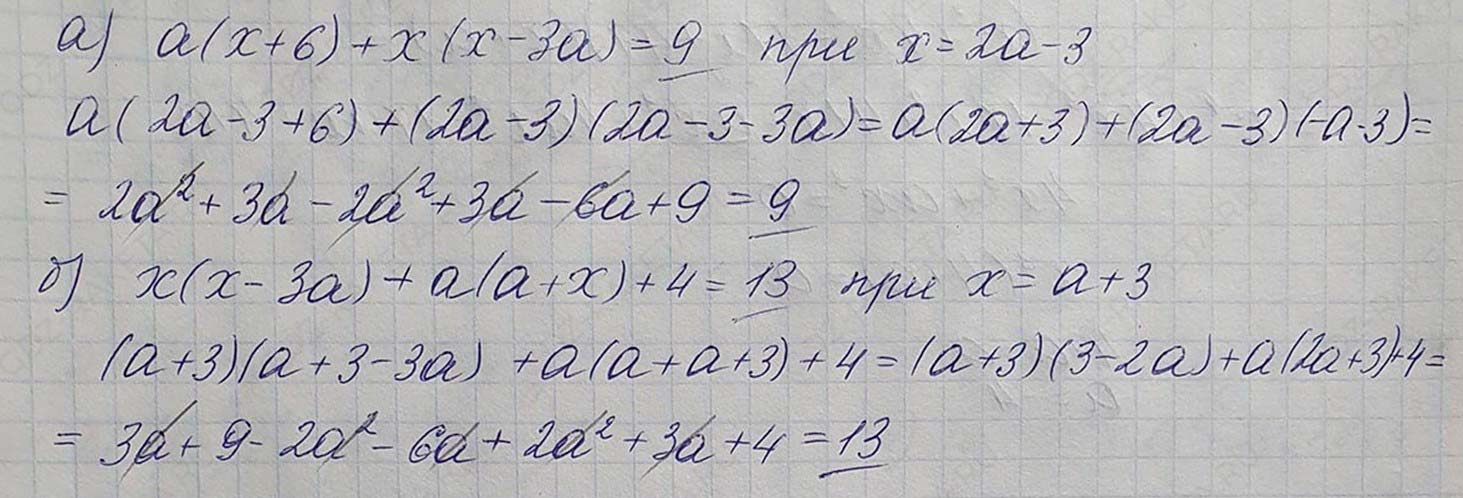 а) a(x+6)+x(x-3a)=9 при x=2a-3
a(2a-3+6)+(2a-3)(2a-3-3a)=a(2a+3)+(2a-3)(-a-3)=
= 2a²+3a-2a²+3a-6a+9=9
б) x(x-3a)+a(a+x)+4=13 при x=a+3
(a+3)(a+3-3a)+a(a+a+3)+4=(a+3)(3-2a)+a(2a+3)+4=
= 3a+9-2a²-6a+2a²+3a+4=13